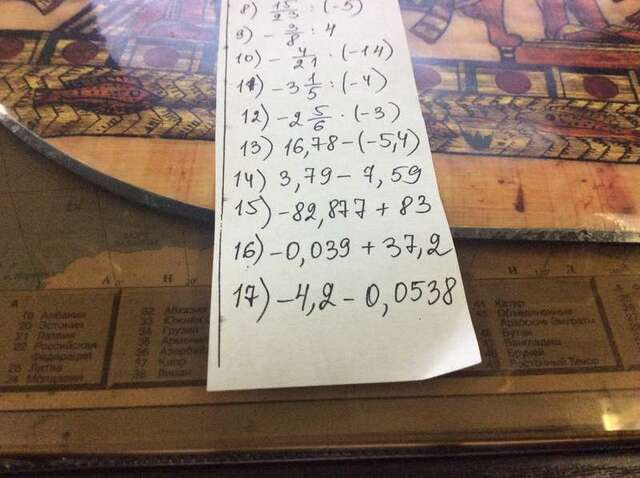 8) 15/23 : (-5)
9) - 3/8 : 4
10) - 4/21 · (-14)
11) - 3 1/5 : (-4)
12) - 2 5/6 · (-3)
13) 16,78 - (-5,4)
14) 3,79 - 7,59
15) -82,877 + 83
16) -0,039 + 37,2
17) -4,2 - 0,0538
А
Н
19 Албания
20 Эстония
21 Латвия
22 Российская
Федерация
23 Литва
24 Молдавия
32 Абхазия
33 Южная
34 Грузия
35 Армения
36 Азербай
37 Кипр
38 Ливан
44 Катар
45 Объединенные
Арабские Эмираты
46 Бутан
47 Бангладеш
48 Бруней
Восточный Тимор